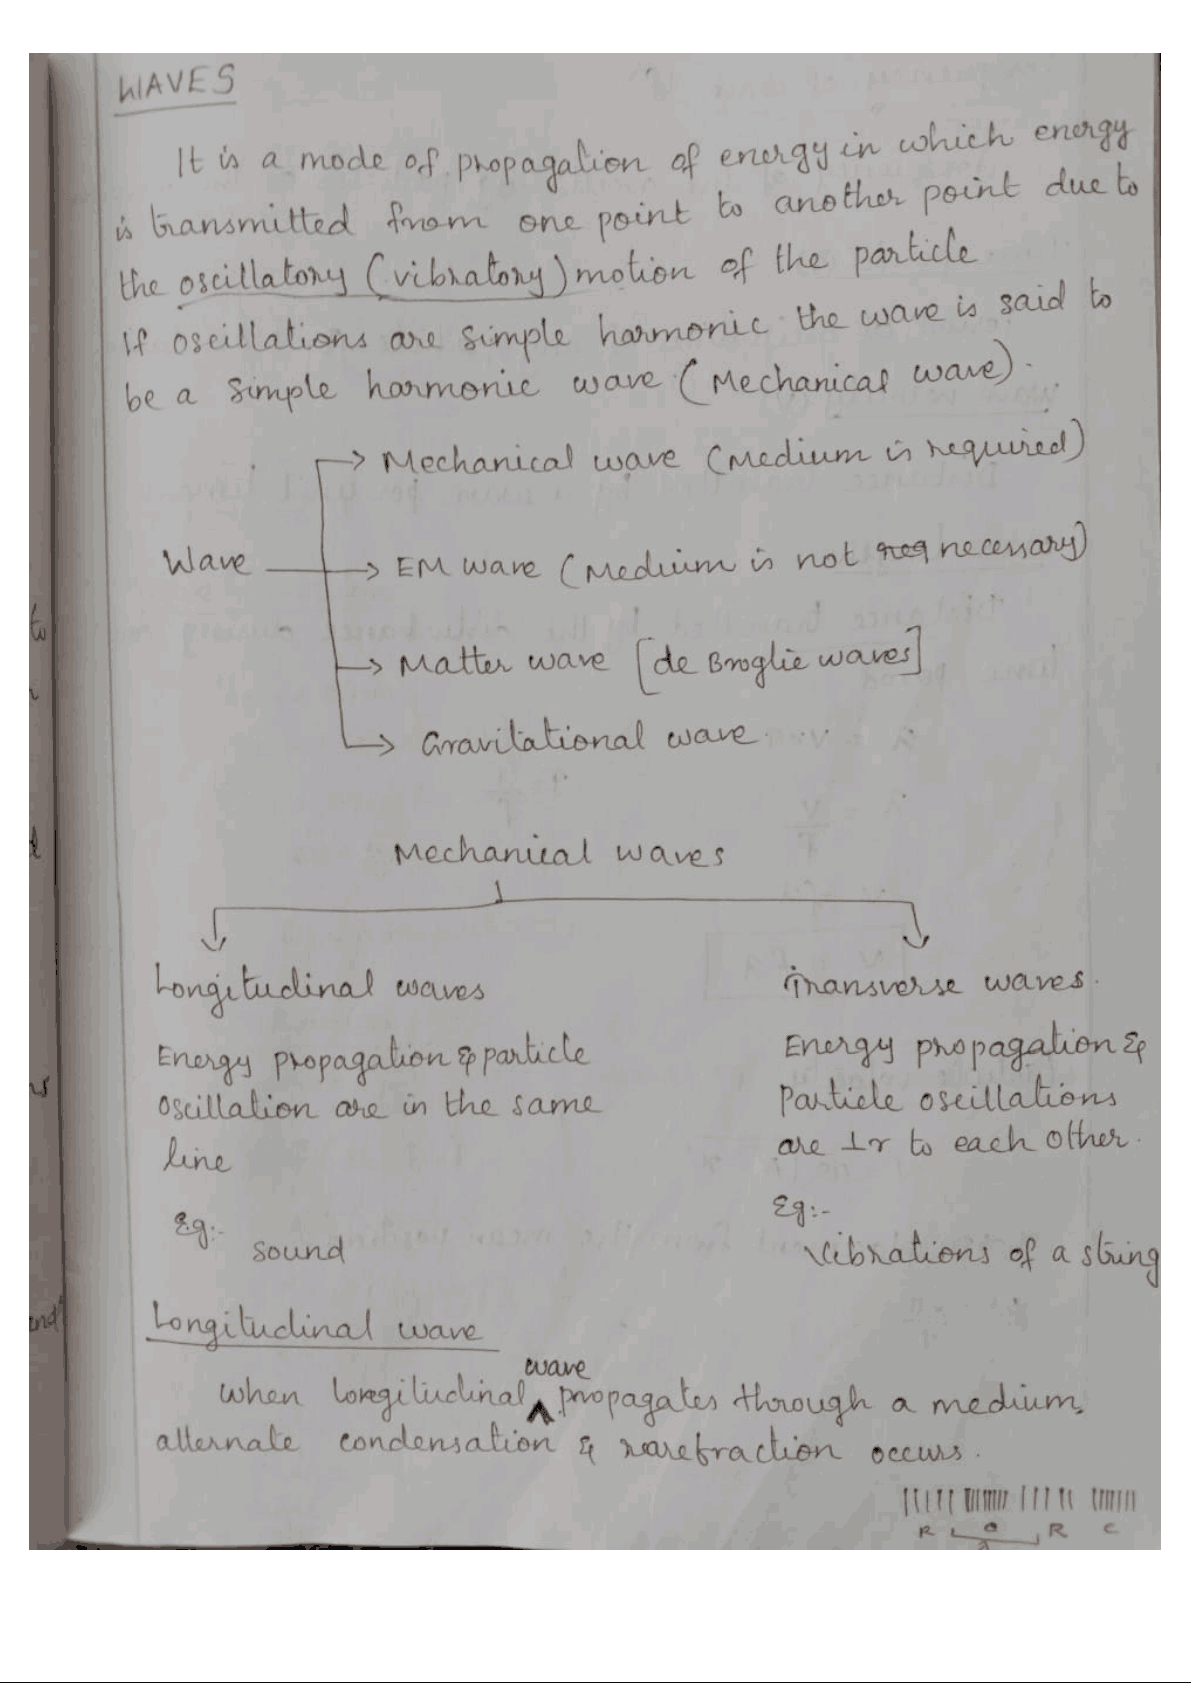 WAVES
It is a mode of propagation of energy in which energy
is transmitted from one point to another point due to
the oscillatory (vibratory) motion of the particle
If oscillations are simple harmonic the wave is said to
be a simple harmonic wave (Mechanical wave).
Mechanical wave (Medium is required)
Wave EM wave (Medium is not req necessary)
to
Matter wave [de Broglie waves]
Gravitational wave.
Mechanical waves
Longitudinal waves
Energy propagation & particle
oscillation are in the same
line
Eg:-
sound
Transverse waves.
Energy propagation &
Particle oscillations
are ⊥r to each other.
Eg:-
Vibrations of a string
Longitudinal wave
When longitudinal wave propagates through a medium,
alternate condensation & rarefraction occurs.
R R C